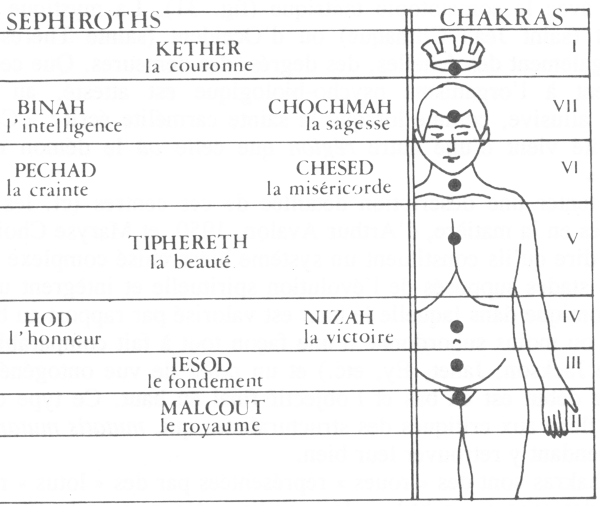 SEPHIROTHS CHAKRAS
KETHER I
la couronne
BINAH CHOCHMAH VII
l'intelligence la sagesse
PECHAD CHESED VI
la crainte la miséricorde
TIPHERETH V
la beauté
HOD NIZAH IV
l'honneur la victoire
IESOD III
le fondement
MALCOUT II
le royaume